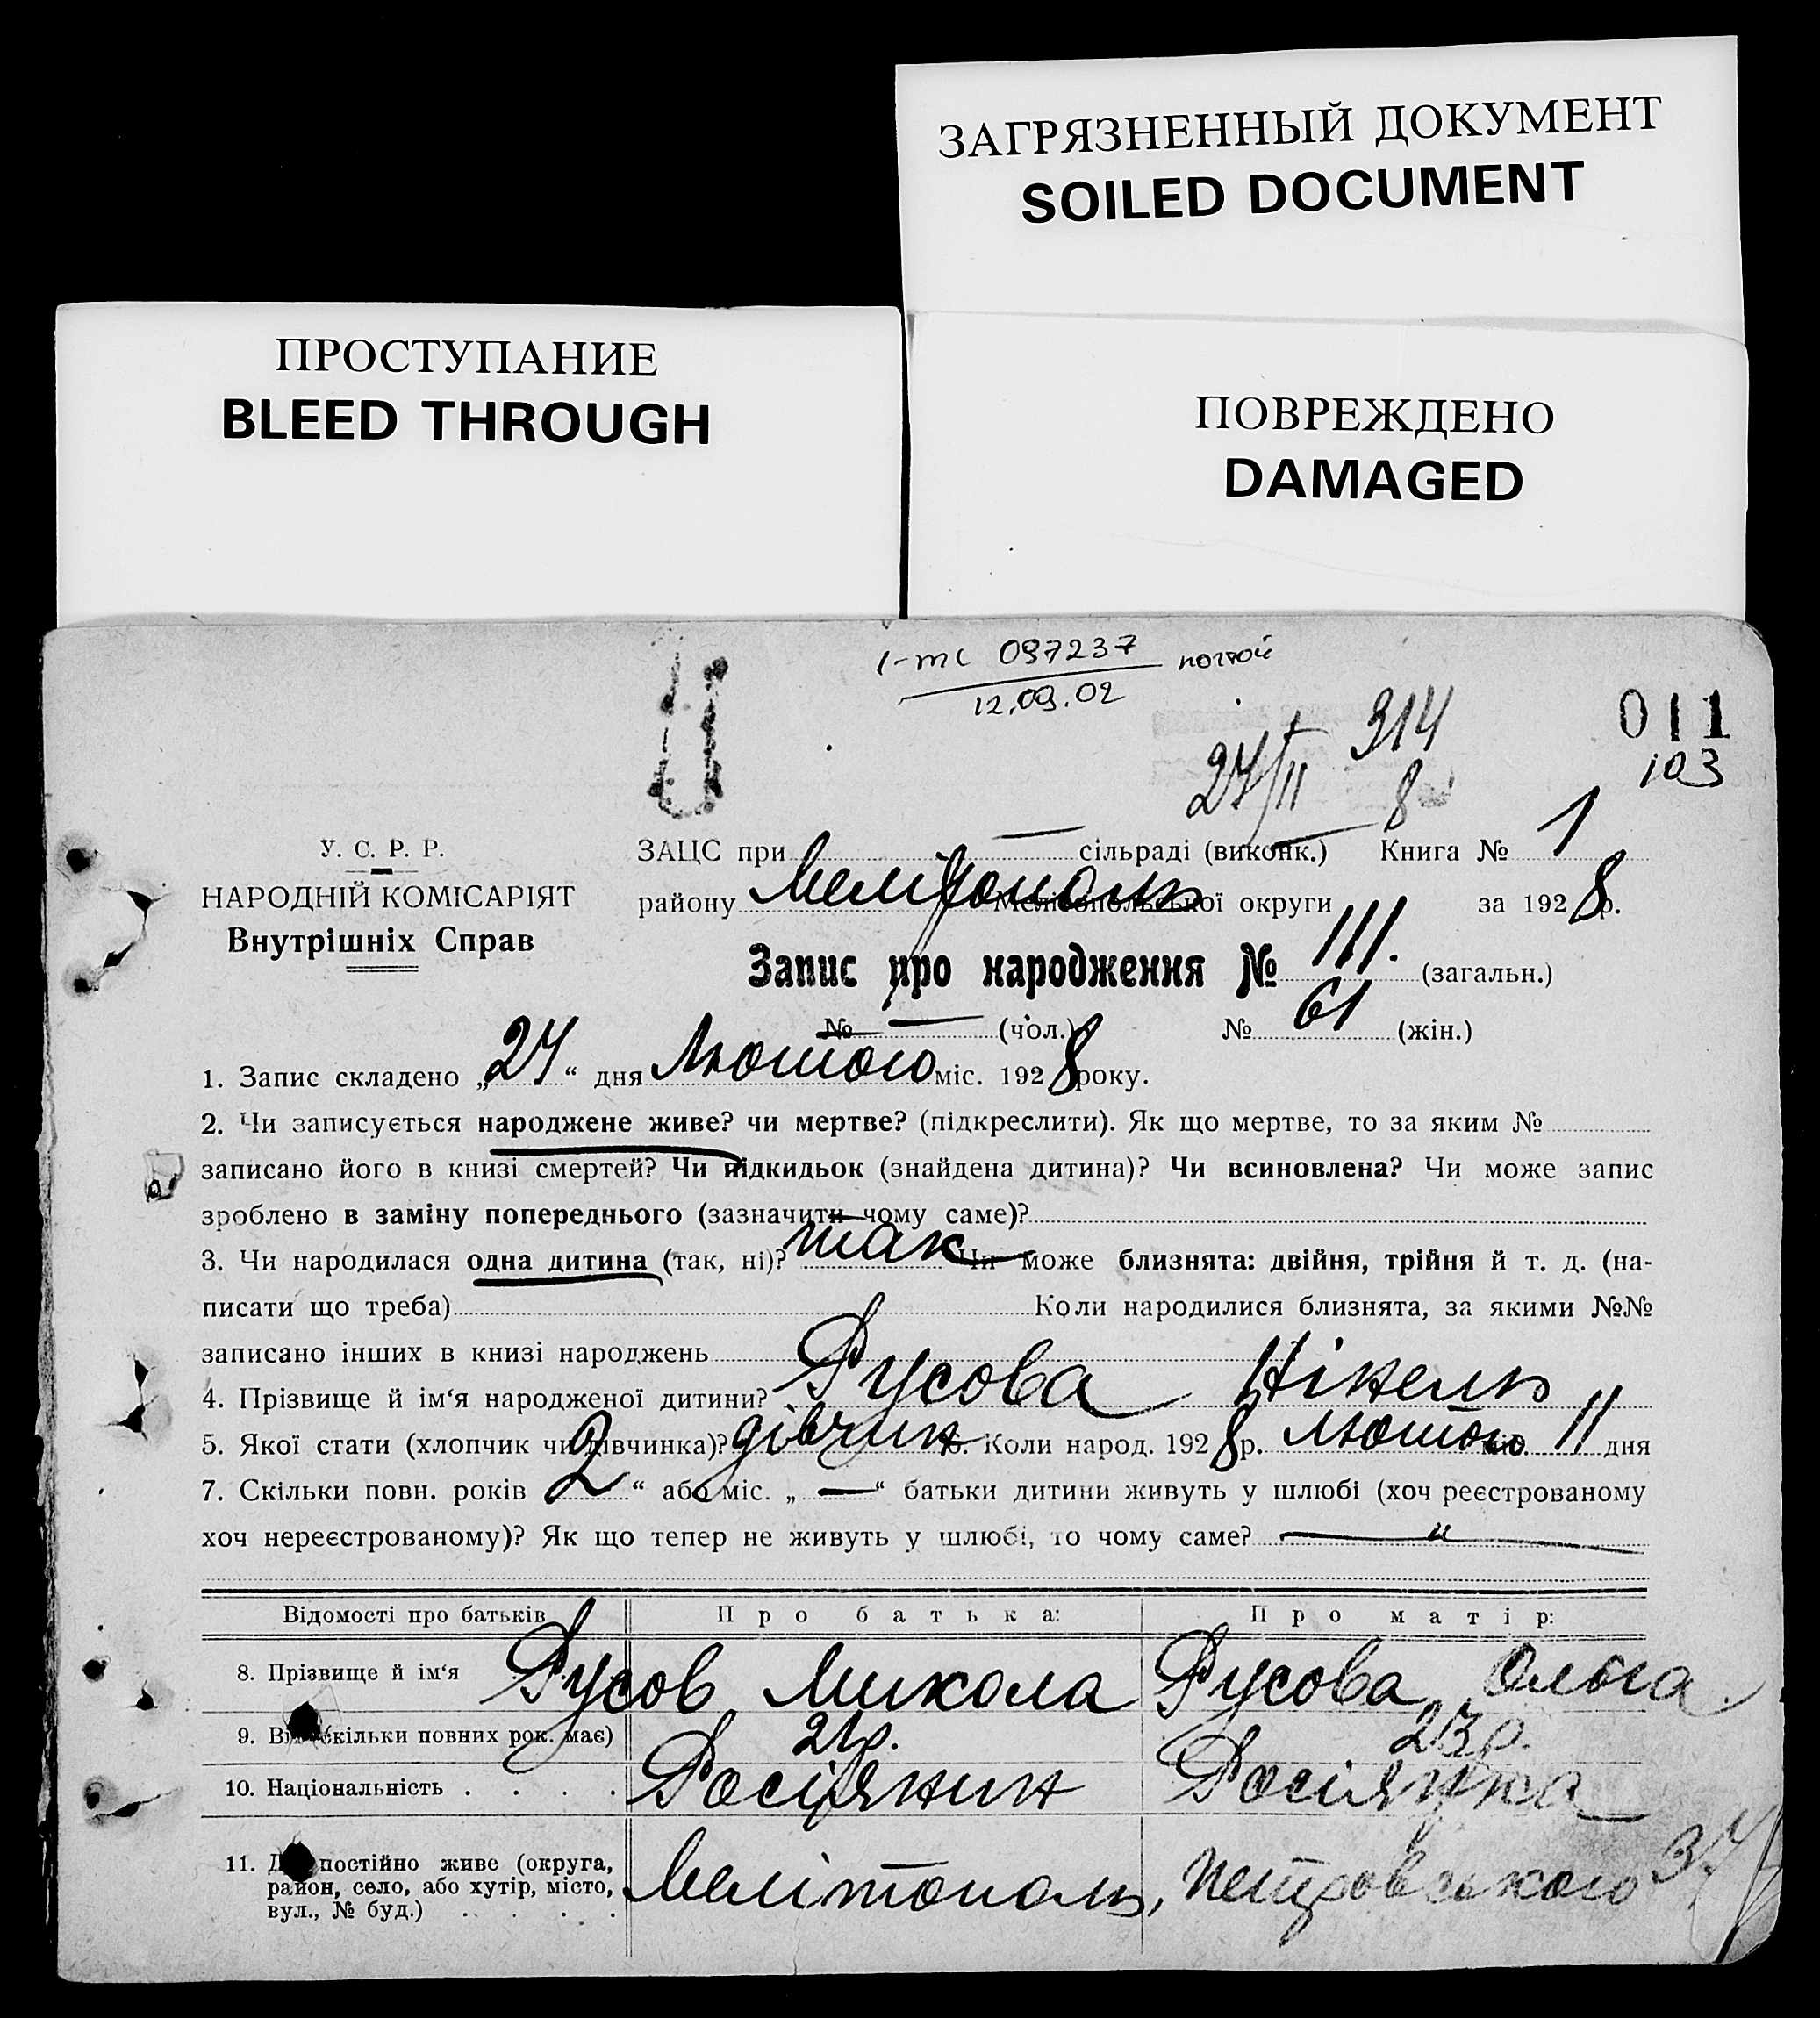 ЗАГРЯЗНЕННЫЙ ДОКУМЕНТ
SOILED DOCUMENT
ПРОСТУПАНИЕ
BLEED THROUGH
ПОВРЕЖДЕНО
DAMAGED
097237
12.09.02
314
011
103
24/II 8
У. С. Р. Р.
НАРОДНІЙ КОМІСАРІЯТ
Внутрішніх Справ
ЗАЦС при — сільраді (виконк.) Книга № 1
району Мелітополь Мелітопольської округи за 1928 р.
Запис про народження № 111. (загальн.)
№ — (чол.) № 61 (жін.)
1. Запис складено „24“ дня Лютого міс. 1928 року.
2. Чи записується народжене живе? чи мертве? (підкреслити). Як що мертве, то за яким №
записано його в книзі смертей? Чи підкидьок (знайдена дитина)? Чи всиновлена? Чи може запис
зроблено в заміну попереднього (зазначити чому саме)?
3. Чи народилася одна дитина (так, ні)? так Чи може близнята: двійня, трійня й т. д. (на-
писати що треба) Коли народилися близнята, за якими №№
записано інших в книзі народжень
4. Прізвище й ім‘я народженої дитини? Русова Нінель
5. Якої стати (хлопчик чи дівчинка)? дівчин 6. Коли народ. 1928 р. Лютого міс. 11 дня
7. Скільки повн. років 2 “ або міс. „ — “ батьки дитини живуть у шлюбі (хоч реєстрованому
хоч нереєстрованому)? Як що тепер не живуть у шлюбі, то чому саме? — " —
Відомості про батьків Про батька: Про матір:
8. Прізвище й ім‘я Русов Микола Русова Ольга
9. Вік (скільки повних рок. має) 21р. 23р.
10. Національність . . . . Росіянин Росіянка
11. Де постійно живе (округа,
район, село, або хутір, місто,
вул., № буд.) . . . . Мелітополь, Петровського 37